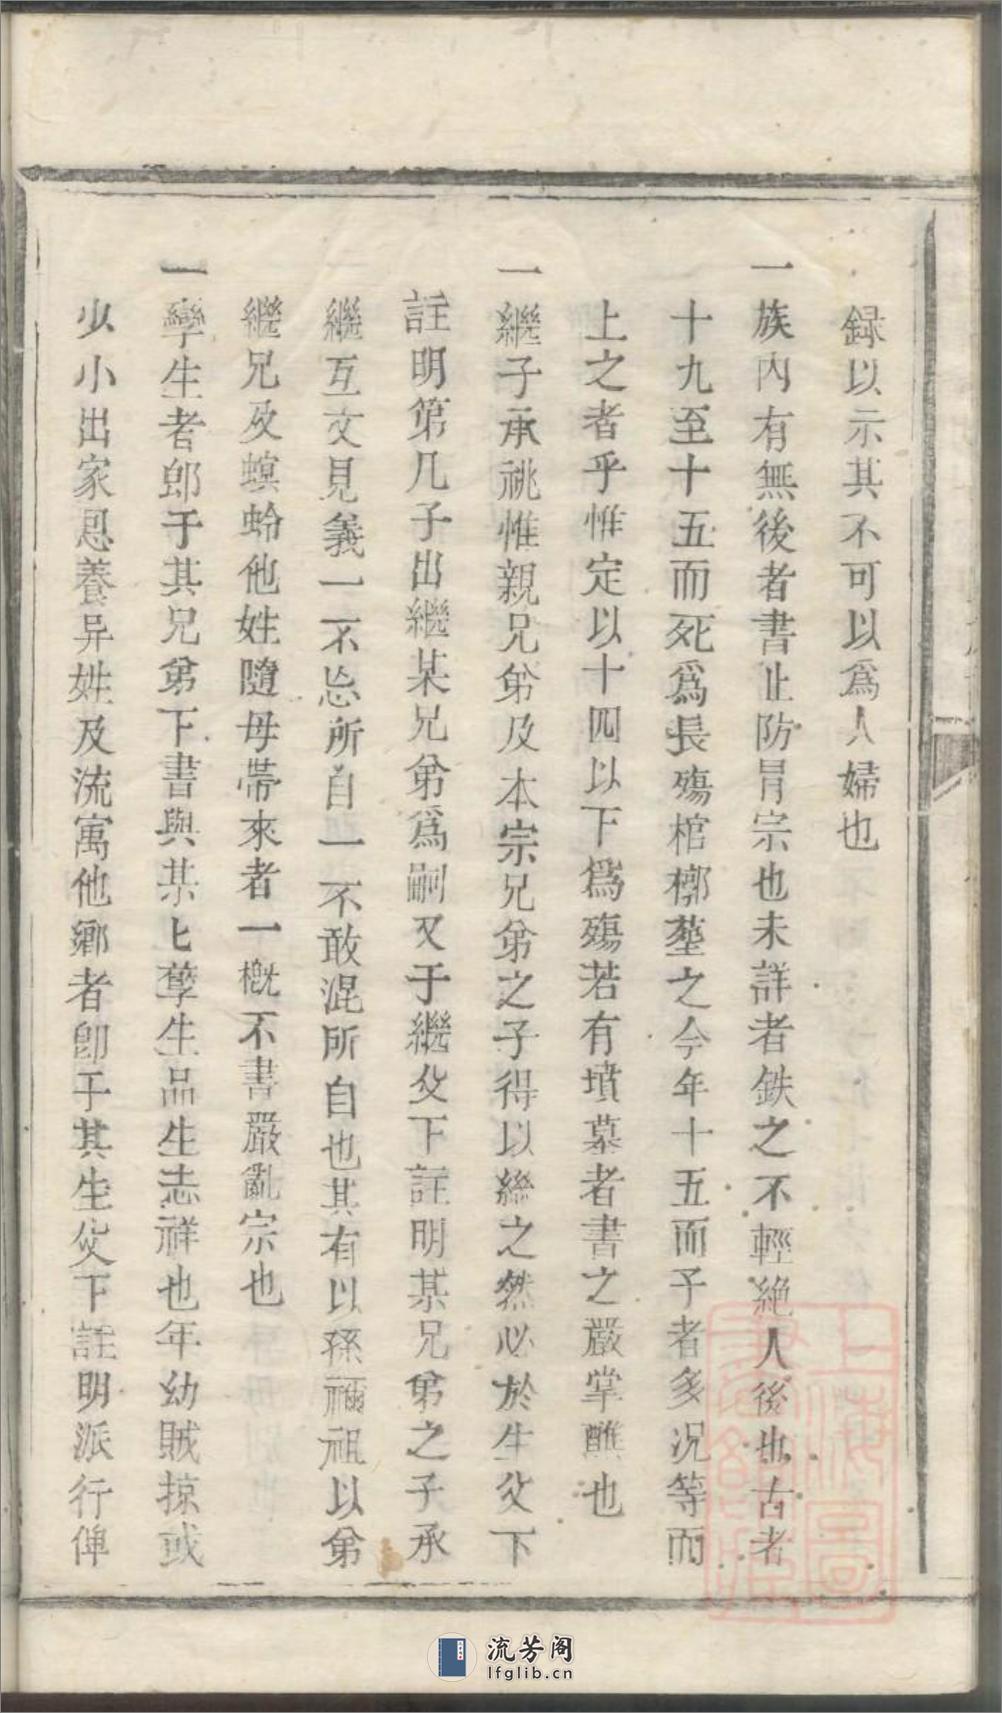 録以示其不可以爲人婦也
一族內有無後者書止防冐宗也未詳者鉄之不輕絶人後也古者
十九至十五而死爲長殤棺槨塟之今年十五而子者多况等而
上之者乎惟定以十四以下爲殤若有墳墓者書之嚴掌醮也
一繼子承祧惟親兄弟及本宗兄弟之子得以繼之然必於生父下
註明第几子出繼某兄弟爲嗣又于繼父下註明某兄弟之子承
繼互文見義一不忘所自一不敢混所自也其有以孫禰祖以弟
繼兄及螟蛉他姓隨母帶來者一概不書嚴亂宗也
一孿生者郎于其兄弟下書與某匕孿生品生志祥也年幼賊掠或
少小出家恩養异姓及流寓他鄉者卽于其生父下註明派行俾
上海圖書館藏
流芳阁
lfglib.cn